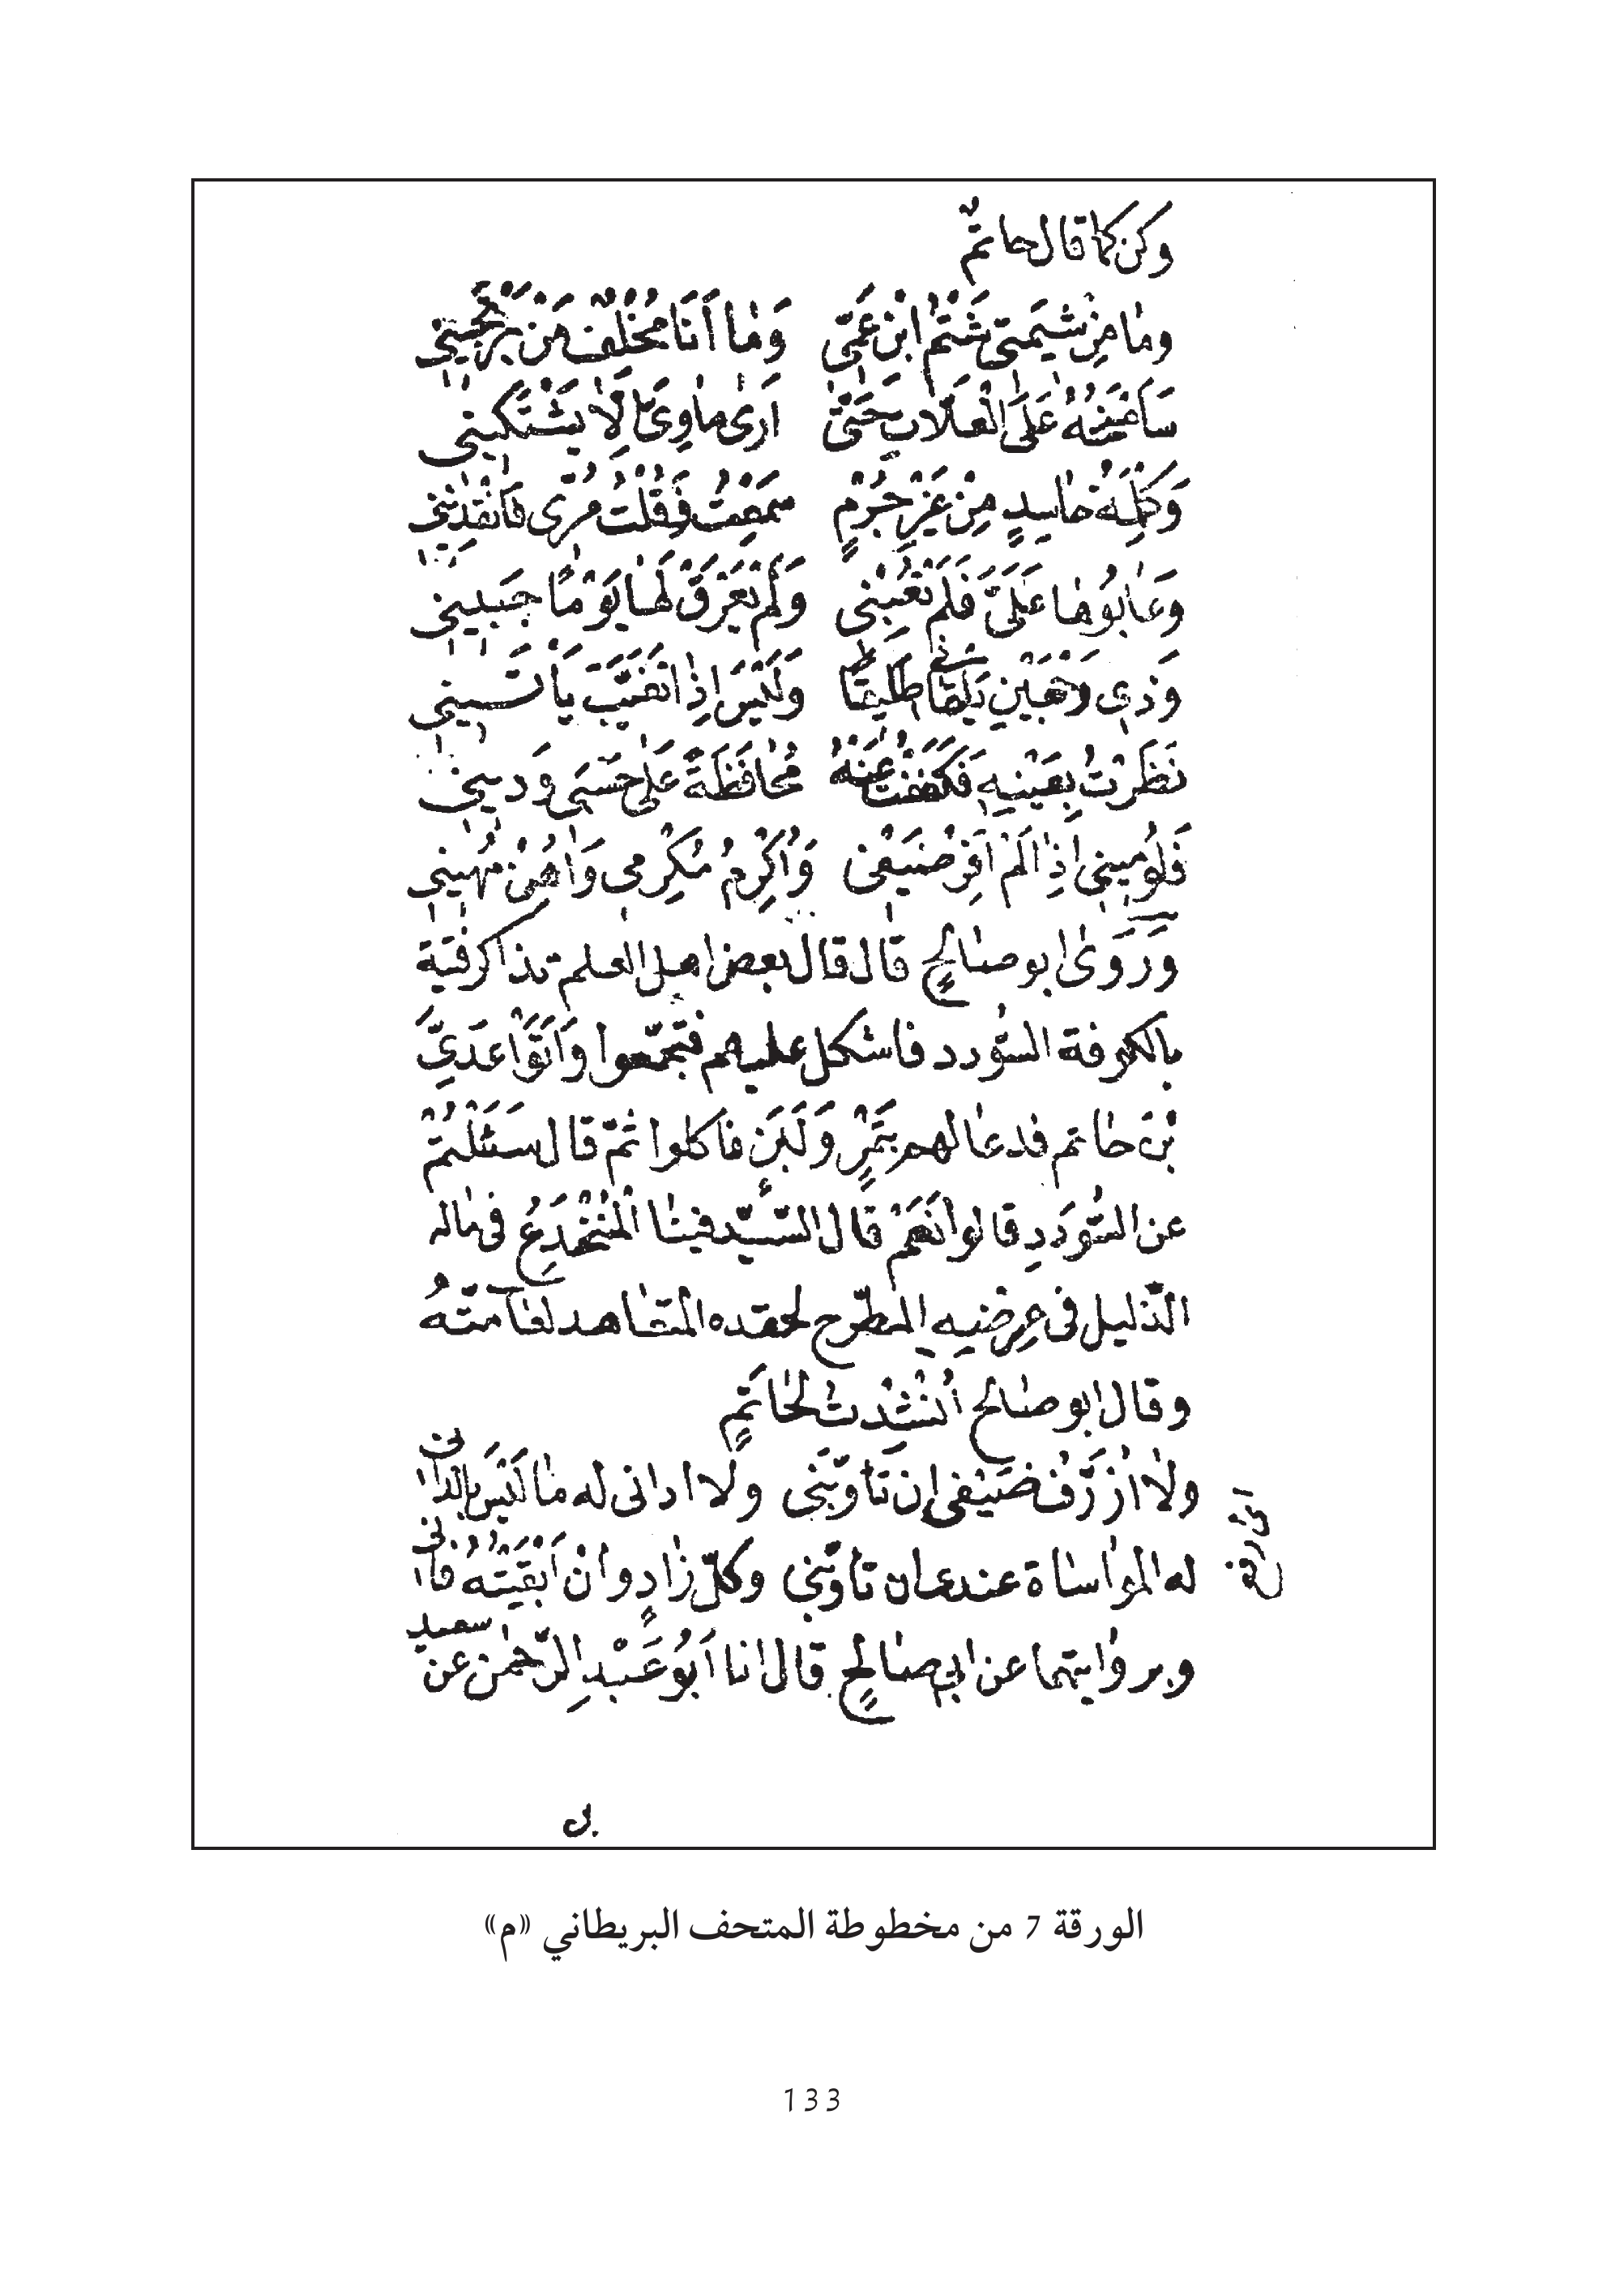 وكن كما قال حاتم
وَمَا مِنْ شِيمَتى شَتْمُ ابْنِ عَمّى وَمَا أَنَا مُخْلِفٌ مَنْ يَرْتَجِينِى
سَأمْنَحُهُ عَلَى الْعِلّاتِ حَتّى أرَى مَاوِىَّ أَلّا يَشْتَكِينِى
وَكَلِمَةِ حَاسِدٍ مِنْ غَيْرِ جُرْمٍ سَمِعْتُ فَقُلْتُ مُرّى فَانْقِذِينِى
وَعَابُوهَا عَلَىَّ فَلَمْ تَعِبْنِى وَلَمْ يَعْرَقْ لَهَا يَوْمًا جَبِينِى
وَذِى وَجْهَيْنِ يَلْقَانِى طَلِيقًا وَلَيْسَ اِذَا تَغَيَّبَ يَأْتَسِينِى
نَظَرْتُ بِعَيْنِهِ فَكَفَفْتُ عَنْهُ مُحَافَظَةً عَلَى حَسَبِى وَدِينِى
فَلُومِينِى اِذَا لَمْ اَقْرِ ضَيْفِى وَاُكْرِمُ مُكْرِمِى وَاُهِنْ مُهِينِى
وَرَوَى ابو صالحٍ قال قال بعض اهل العلم تذاكر فتية
بالكوفة السّودد فاشكل عليهم فتجمّعوا وَاَتَوْا عَدِيَّ
بْنَ حاتم فدعا لهم بِتَمْرٍ وَلَبَنٍ فاكلوا ثمّ قال سَئَلْتُمْ
عن السّودَدِ قالوا نَعَمْ قال السّيّد فينا الْمُنْخَدِعُ فى ماله
الذّليل فى عِرضِهِ المطّرح لحقده المتعاهد لعامّتهُ
وقال ابو صالح أُنْشِدْتُ لحَاتَمٍ
ولا اُزَرِّفُ ضَيْفى اِن تَأوّبَنى ولا ادانى له ما لَيْسَ بالدانى
له المواساة عندى ان تأوّبنى وكلّ زادٍ وان اَبْقَيْتُهُ فانى
وبروايتهما عن ابى صالحٍ قال انا اَبُو عَبْدِ الرّحمن عن سعيد
الورقة 7 من مخطوطة المتحف البريطاني «م»
133